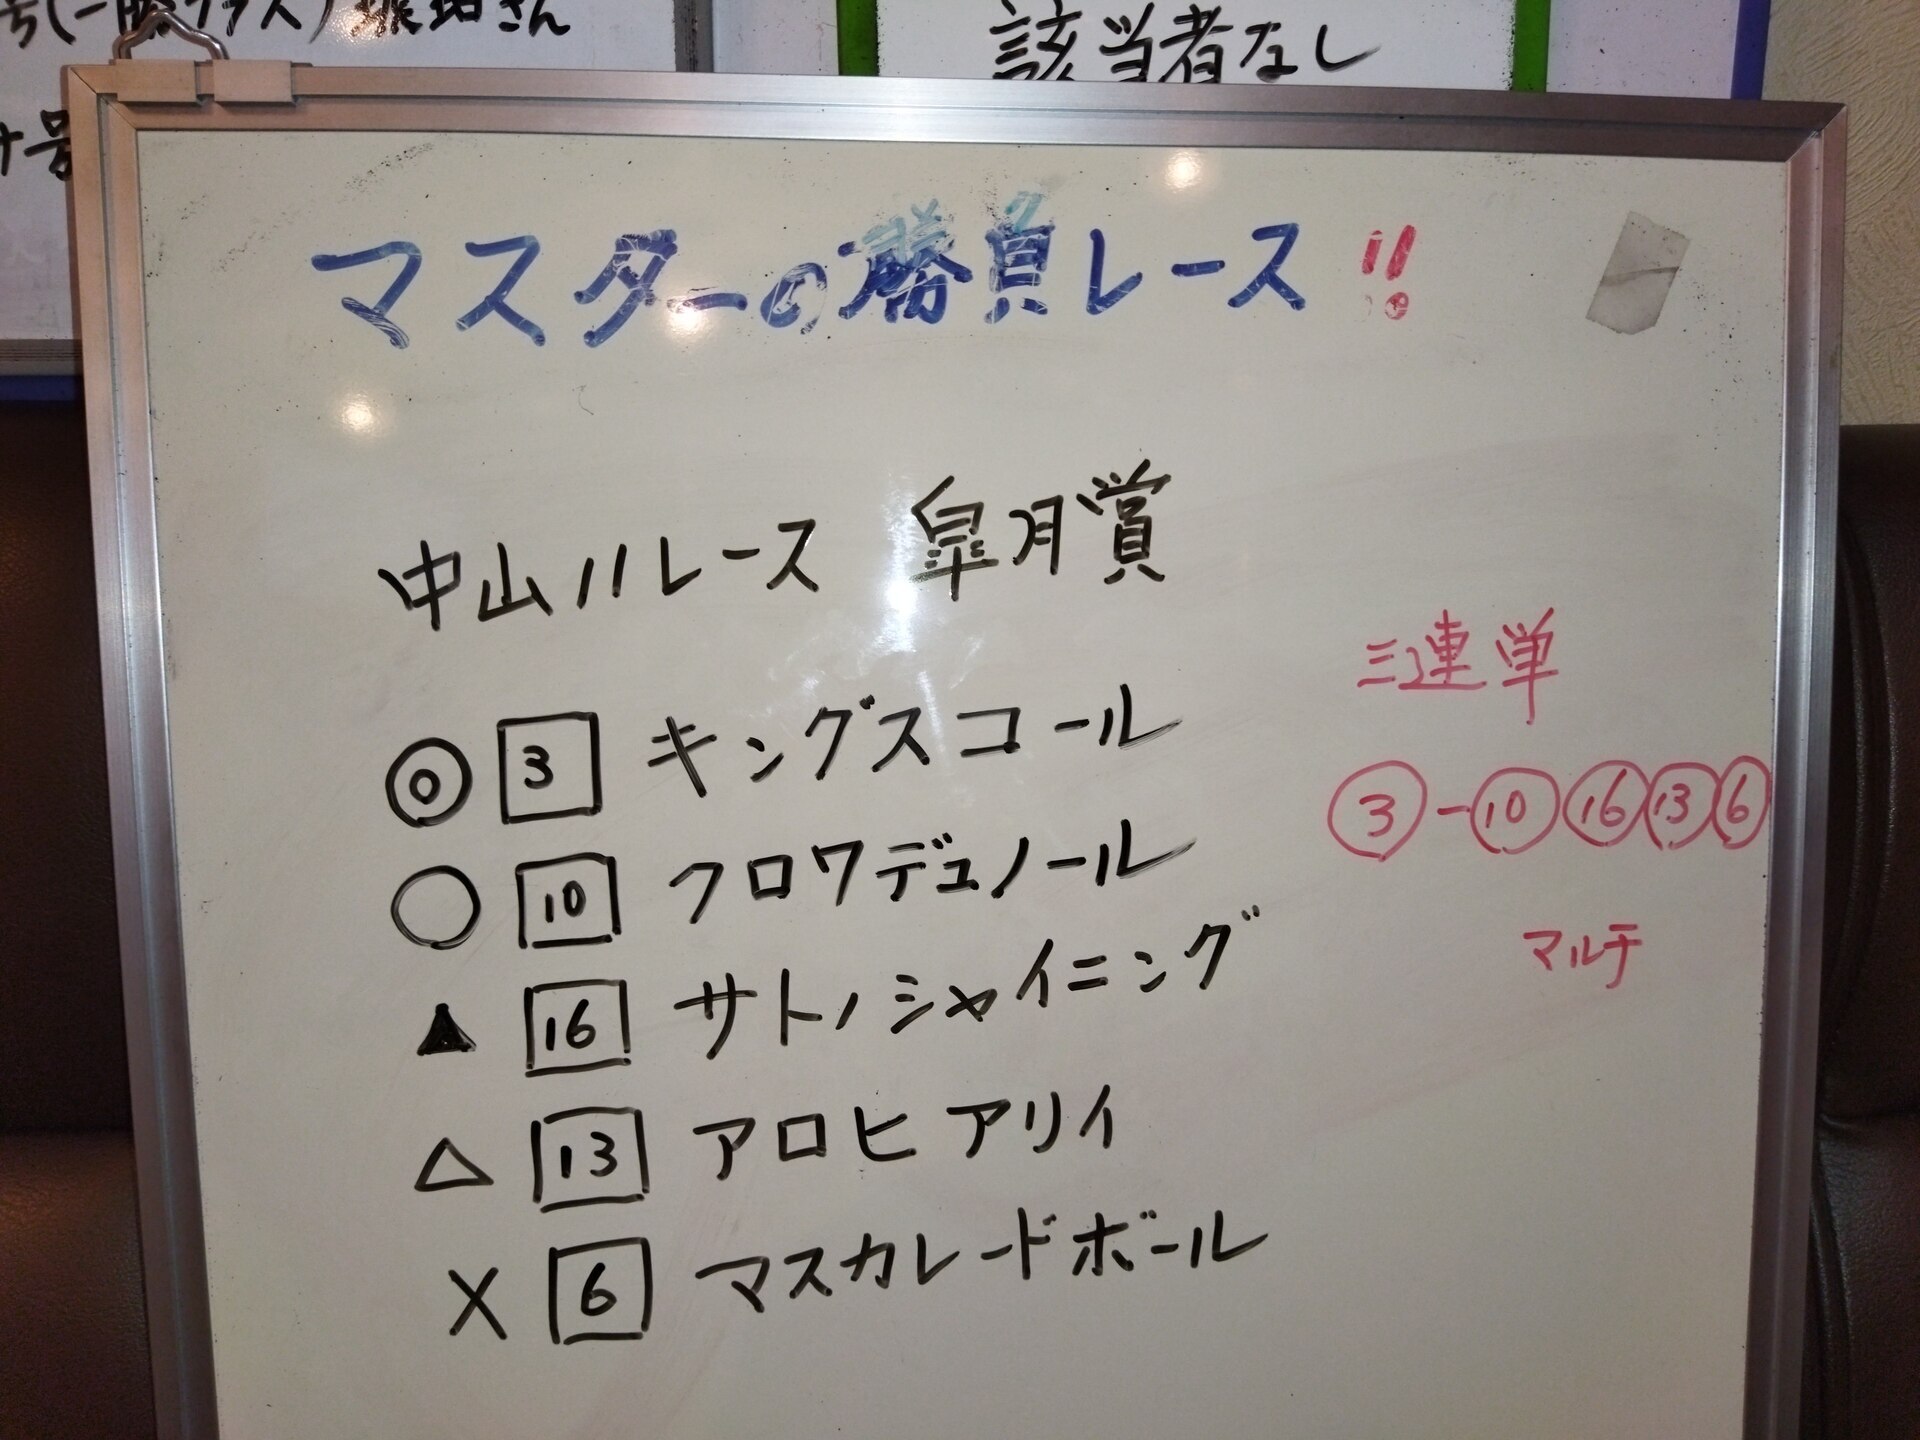 該当者なし
マスターの勝負レース!!
中山11レース 皐月賞
◎ 3 キングスコール
○ 10 クロワデュノール
▲ 16 サトノシャイニング
△ 13 アロヒアリイ
× 6 マスカレードボール
三連単
③-⑩⑯⑬⑥
マルチ